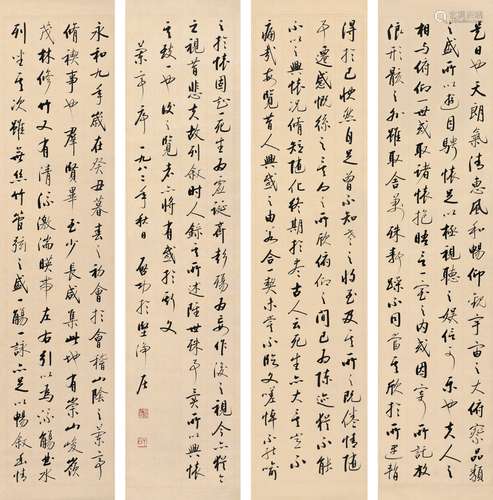 永和九年歲在癸丑暮春之初會於會稽山陰之蘭亭
脩禊事也羣賢畢至少長咸集此地有崇山峻嶺
茂林修竹又有清流激湍暎帶左右引以為流觴曲水
列坐其次雖無絲竹管弦之盛一觴一詠亦足以暢敘幽情
是日也天朗氣清惠風和暢仰觀宇宙之大俯察品類
之盛所以遊目騁懷足以極視聽之娛信可樂也夫人之
相與俯仰一世或取諸懷抱悟言一室之內或因寄所託放
浪形骸之外雖取舍萬殊靜躁不同當其欣於所遇暫
得於己快然自足曾不知老之將至及其所之既倦情隨
事遷感慨係之矣向之所欣俯仰之間已為陳迹猶不能
不以之興懷況脩短隨化終期於盡古人云死生亦大矣豈不
痛哉每覽昔人興感之由若合一契未嘗不臨文嗟悼不能喻
之於懷固知一死生為虛誕齊彭殤為妄作後之視今亦猶今
之視昔悲夫故列敘時人錄其所述雖世殊事異所以興懷
其致一也後之覽者亦將有感於斯文
蘭亭序 一九八二年秋日 啟功於堅淨居